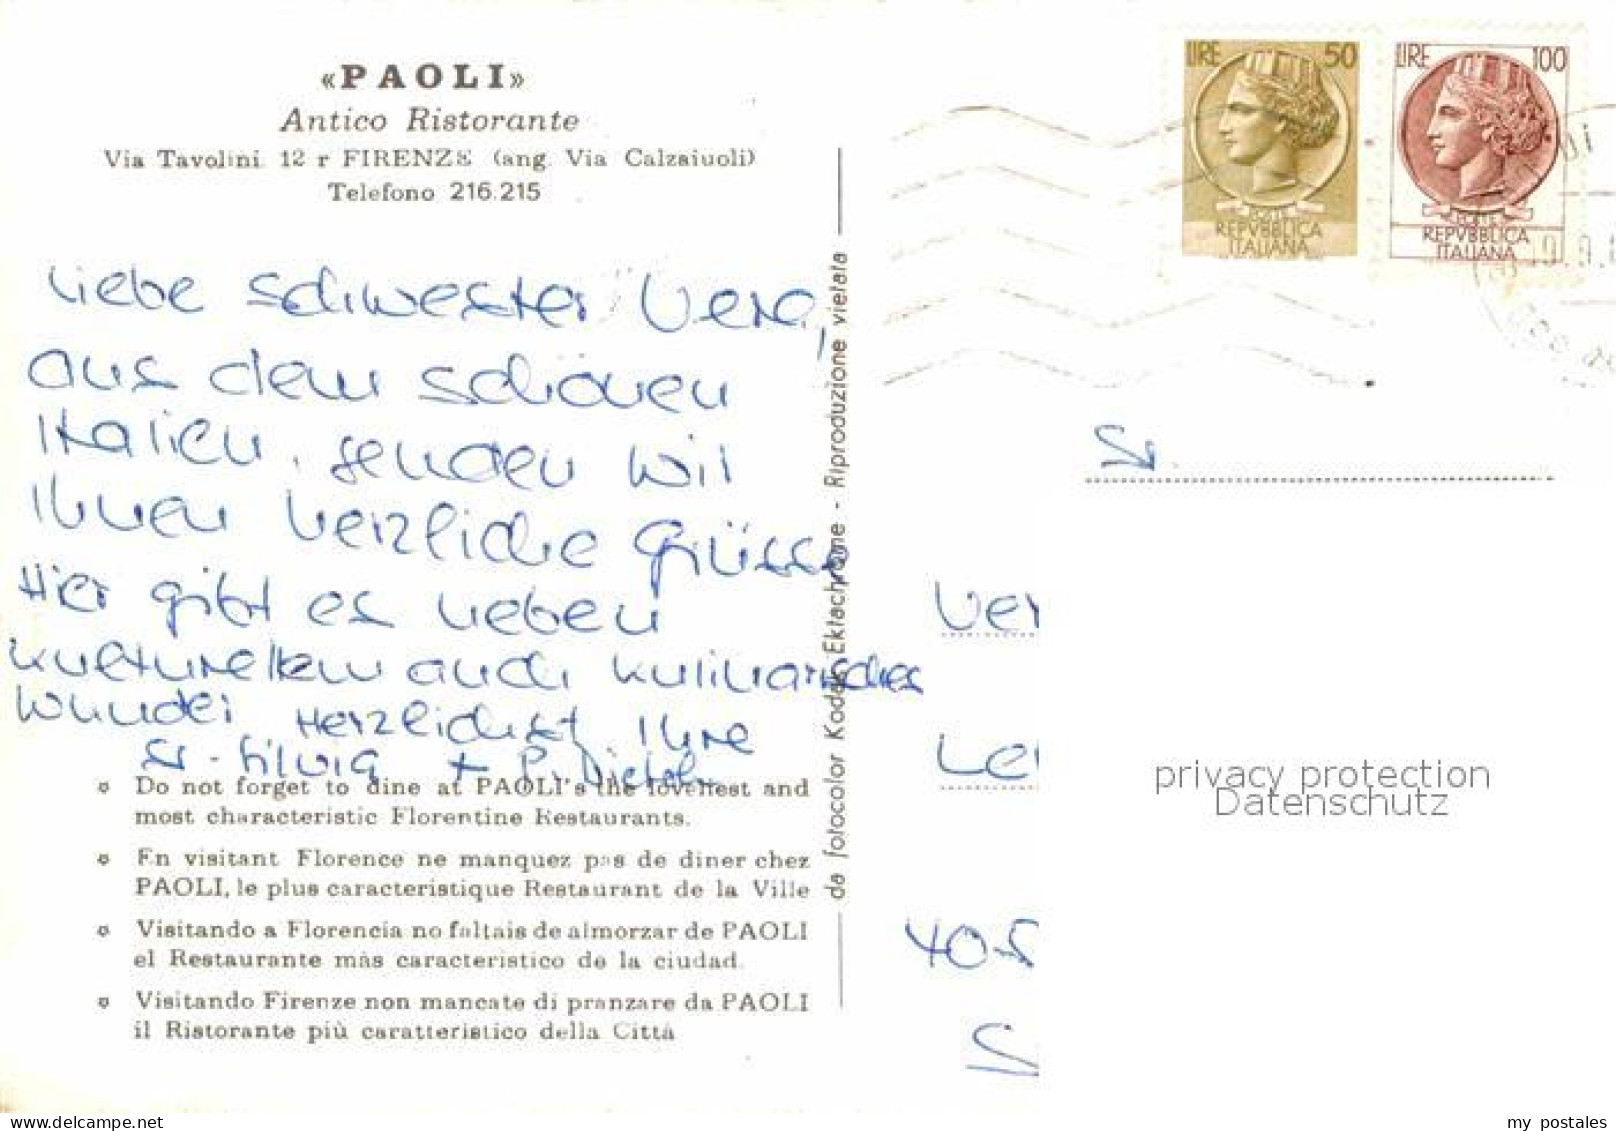 «PAOLI»
Antico Ristorante
Via Tavolini 12 r FIRENZE (ang. Via Calzaiuoli)
Telefono 216.215
Liebe Schwester Vera,
aus dem schönen
Italien, senden wir
Ihnen herzliche Grüsse
Hier gibt es neben
kulturellem auch kulinarisches
Wunder Herzlichst Ihre
Sr. Silvia + P.
Do not forget to dine at PAOLI's the loveliest and
most characteristic Florentine Restaurants.
En visitant Florence ne manquez pas de diner chez
PAOLI, le plus caracteristique Restaurant de la Ville
Visitando a Florencia no faltais de almorzar de PAOLI
el Restaurante màs caracteristico de la ciudad.
Visitando Firenze non mancate di pranzare da PAOLI
il Ristorante più caratteristico della Città
da fotocolor Kodak Ektachrome - Riproduzione vietata
LIRE 50
POSTE
REPVBBLICA
ITALIANA
LIRE 100
POSTE
REPVBBLICA
ITALIANA
Sr.
Ver
Le
40-5
privacy protection
Datenschutz
my postales